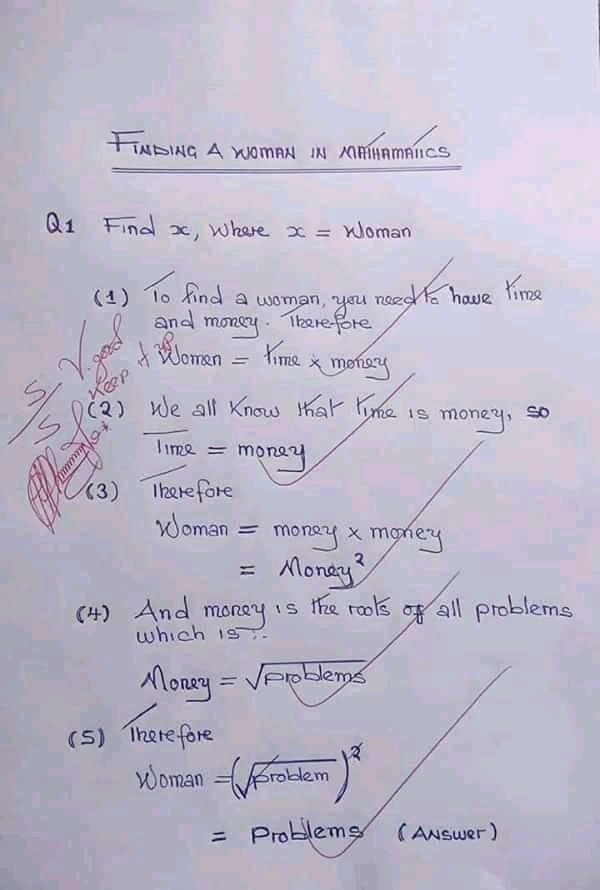 FINDING A WOMAN IN MATHAMATICS
Q1 Find x, where x = Woman
(1) To find a woman, you need to have time
and money. Therefore
Women = time x money
5/5 V. good
Keep it up
(2) We all know that time is money, so
Time = money
(3) Therefore
Woman = money x money
= Money²
(4) And money is the roots of all problems
which is :.
Money = √problems
(5) Therefore
Woman = (√problem)²
= Problems (ANSWER)